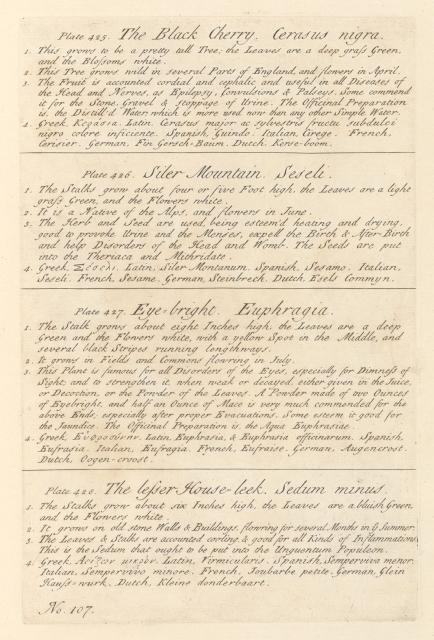 Plate 425. The Black Cherry. Cerasus nigra.
1. This grows to be a pretty tall Tree; the Leaves are a deep graſs Green,
and the Bloſsoms white.
2. This Tree grows wild in several Parts of England, and flowers in April.
3. The Fruit is accounted cordial and cephalic and useful in all Diseases of
the Head and Nerves, as Epilepsy, Convulsions & Palseys. Some commend
it for the Stone, Gravel & stoppage of Urine. The Officinal Preparation
is, the Distill'd Water which is more used now than any other Simple Water.
4. Greek, Κερασια. Latin, Cerasus major ac sylvestris fructu subdulci
nigro colore inficiente. Spanish, Guindo. Italian, Cirege. French,
Cerisier. German, Fin Gersch-Baum. Dutch, Kerse-boom.
Plate 426. Siler Mountain. Seseli.
1. The Stalks grow about four or five Foot high, the Leaves are a light
graſs Green, and the Flowers white.
2. It is a Native of the Alps, and flowers in June.
3. The Herb and Seed are used, being esteem'd heating and drying,
good to provoke Urine and the Menses, expell the Birth & After-Birth
and help Disorders of the Head and Womb. The Seeds are put
into the Theriaca and Mithridate.
4. Greek, Σέσελι. Latin, Siler Montanum. Spanish, Sesamo. Italian,
Seseli. French, Sesame. German, Steinbrech. Dutch, Esels Commyn.
Plate 427. Eye-bright. Euphragia.
1. The Stalk grows about eight Inches high, the Leaves are a deep
Green and the Flowers white, with a yellow Spot in the Middle, and
several black Stripes running longthways.
2. It grows in Fields and Commons flowring in July.
3. This Plant is famous for all Disorders of the Eyes, especially for Dimneſs of
Sight, and to strengthen it, when weak or decayed, either given in the Juice,
or Decoction, or the Powder of the Leaves. A Powder made of two Ounces
of Eyebright, and half an Ounce of Mace is very much commended for the
above Ends, especially after proper Evacuations. Some esteem it good for
the Jaundice. The Officinal Preparation is, the Aqua Euphrasiae.
4. Greek, Latin, Euphrasia, & Euphrasia officinarum. Spanish,
Eufrasia. Italian, Eufragia. French, Eufraise. German, Augencrost.
Dutch, Oogen-croost.
Plate 428. The leſser House-leek. Sedum minus.
1. The Stalks grow about six Inches high, the Leaves are a bluish Green,
and the Flowers white.
2. It grows on old stone Walls & Buildings, flowring for several Months in ye Summer.
3. The Leaves & Stalks are accounted cooling, & good for all Kinds of Inflammations.
This is the Sedum that ought to be put into the Unguentum Populeon.
4. Greek, Αειζοον μικρον. Latin, Virmicularis. Spanish, Semperviva menor.
Italian, Sempervivo minore. French, Joubarbe petite. German, Glein
Hauſs-wurk. Dutch, Kleine donderbaart.
No. 107.